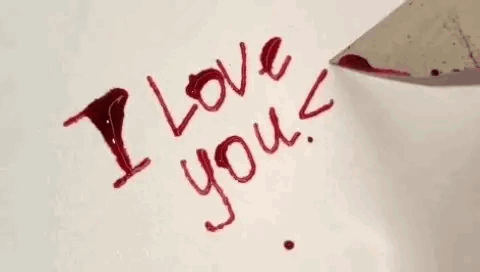 I Love
you<.